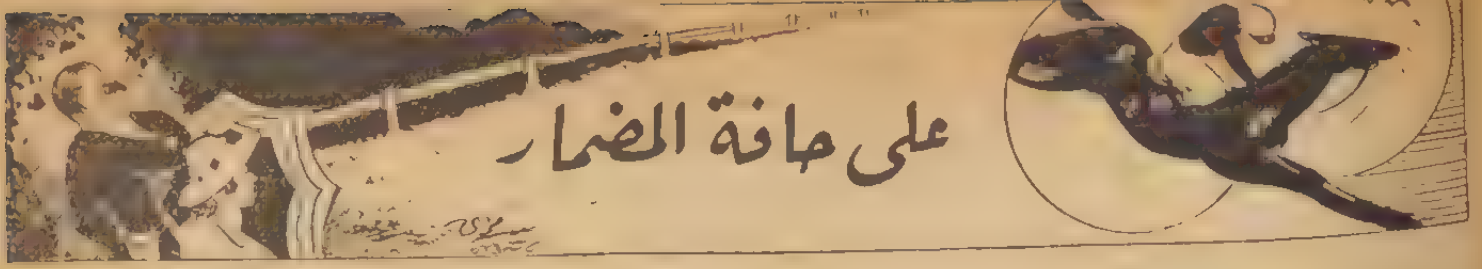 على حافة المضمار